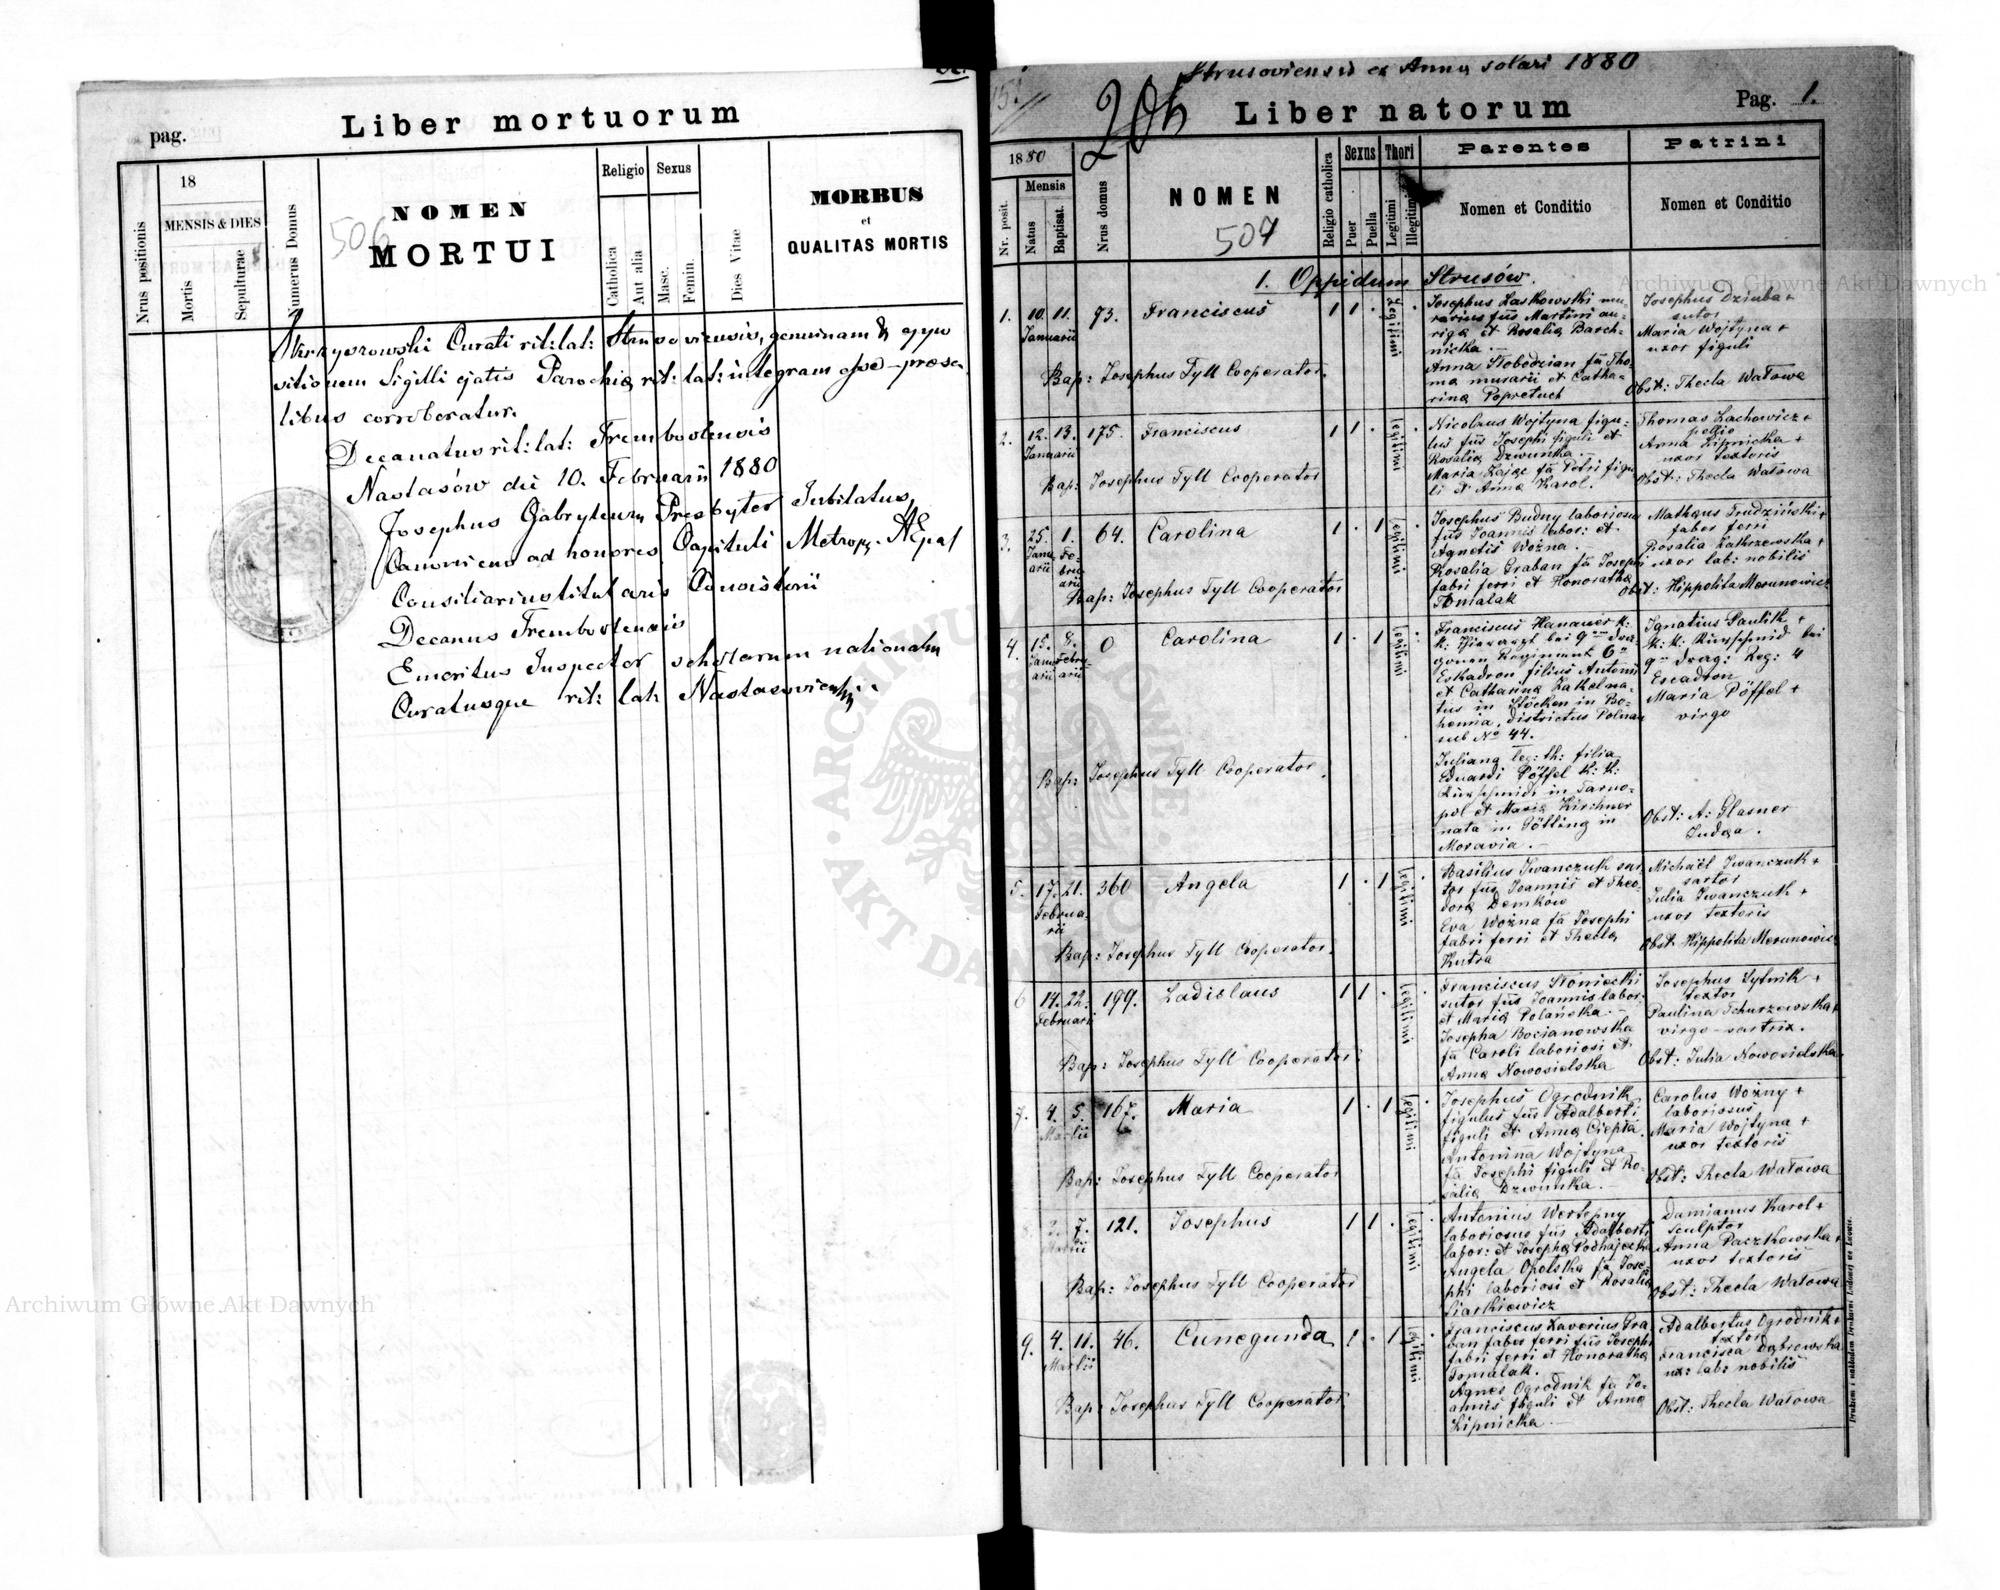 Liber mortuorum
pag.
Nrus positionis
18
MENSIS & DIES
Mortis
Sepulturae
Numerus Domus
NOMEN
MORTUI
506
Religio
Catholica
Aut alia
Sexus
Masc.
Femin.
Dies Vitae
MORBUS
et
QUALITAS MORTIS
Curati rit: lat: Strusoviensis, genuinam &
Sigilli ejatis Parochiæ rit: lat: integram
libus corroboratur.
Decanatus rit: lat: Trembovlensis
Nastasów die 10. Februarii 1880
Josephus Presbyter Jubilatus
ad honores Capituli
Consistorii
Decanus Trembovlensis
Emeritus Inspector scholarum nationalm
Curatusque rit: lat: Nastasoviensis
Strusoviensis ex Anno solari 1880
206
Liber natorum
Pag. 1.
1880
Nr. posit.
Mensis
Natus
Baptisat.
Nrus domus
NOMEN
507
Religio catholica
Sexus
Puer
Puella
Thori
Legitimi
Illegitimi
Parentes
Nomen et Conditio
Patrini
Nomen et Conditio
1. Oppidum Strusów.
1. 10. 11. Januarii 73. Franciscus 1 1 . Legitimi
Josephus Laskowski mu-
rarius fius Martini au-
riga et Rosalia Barch-
nicka.
Anna Slobodzian fa Tho-
ma murarii et Catha-
rina Popretuch
Josephus Dziuba +
sutor
Maria Wojtyna +
uxor figuli
Obst: Thecla Watowa
Bap: Josephus Tyll Cooperator.
2. 12. 13. Januarii 175. Franciscus 1 1 . Legitimi
Nicolaus Wojtyna figu-
lus fius Josephi figuli et
Rosalia Dzwinka.
Maria Zając fa Petri figu
li et Anna Karol.
Thomas Lachowicz +
pellio
Anna Lipnicka +
uxor textoris
Obst: Thecla Watowa
Bap: Josephus Tyll Cooperator
3. 25. Januarii 1. Februarii 64. Carolina 1 . 1 Legitimi
Josephus Budny laboriosus
fius Joannis labor: et
Agnetis Woźna.
Rosalia Graban fa Josephi
fabri ferri et Honorathæ
Tomalak
Mathæus Trudziński +
faber ferri
Rosalia Zakrzewska +
uxor lab: nobilis
Obst: Hippolita Merunowicz
Bap: Josephus Tyll Cooperator
4. 15. Januarii 8. Februarii 0 Carolina 1 . 1 Legitimi
Franciscus Hanauer k:
k: Thierarzt bei 9ten Dra-
gonen Regiment 6te
Eskadron filius Antonii
et Catharina Zakelna-
tus in Stöcken in Bo-
hemia, districtus Polna
sub No 44.
Juliana leg: th: filia
Eduardi Pöffel k: k:
Kurschmidt in Tarno-
pol et Maria Kirchner
nata in Götting in
Moravia.
Ignatius Paulik +
k: k: Kurschmid bei
9en Drag: Reg: 4
Escadron
Maria Pöffel +
virgo
Obst: A: Glasner
Judæa.
Bap: Josephus Tyll Cooperator.
5. 17. 21. Februarii 360 Angela 1 . 1 Legitimi
Basilius Iwanczuk sar-
tor fius Joannis et Theo-
dora Demków
Eva Woźna fa Josephi
fabri ferri et Thecla
Kutra
Michaël Iwanczuk +
sartor
Julia Iwanczuk +
uxor textoris
Obst: Hippolita Merunowicz
Bap: Josephus Tyll Cooperator.
6 14. 22. Februarii 199. Ladislaus 1 1 . Legitimi
Franciscus Słoniecki
sutor fius Joannis labor:
et Maria Polańska.
Josepha Bocianowska
fa Caroli laboriosi et
Anna Nowosielska
Josephus Sytnik +
textor
Paulina Tchurzewska +
virgo - sartrix.
Obst: Julia Nowosielska
Bap: Josephus Tyll Cooperator.
7. 4. 5. Martii 167. Maria 1 . 1 Legitimi
Josephus Ogrodnik
figulus fius Adalberti
figuli et Anna Ciepła.
Antonina Wojtyna
fa Josephi figuli et Ro-
salia Dzwinka.
Carolus Woźny +
laboriosus
Maria Wojtyna +
uxor textoris
Obst: Thecla Watowa
Bap: Josephus Tyll Cooperator
7. Martii 121. Josephus 1 1 . Legitimi
Antonius Wertepny
laboriosus fius Adalberti
labor: et Josepha Podhajecka
Angela Opolska fa Jose-
phi laboriosi et Rosalia
Siarkiewicz
Damianus Karol +
sculptor
Anna Paczkowska +
uxor textoris
Obst: Thecla Watowa
Bap: Josephus Tyll Cooperator
9. 4. 11. Martii 46. Cunegunda 1 . 1 Legitimi
Franciscus Xaverius Gra
ban faber ferri fius Josephi
fabri ferri et Honorathæ
Tomalak.
Agnes Ogrodnik fa Jo-
annis figuli et Anna
Lipnicka
Adalbertus Ogrodnik +
textor
Francisca Dąbrowska
ux: lab: nobilis
Obst: Thecla Watowa
Bap: Josephus Tyll Cooperator
Drukiem i nakładem Drukarni Ludowej we Lwowie.
Archiwum Główne Akt Dawnych
Archiwum Główne Akt Dawnych
ARCHIWUM GŁÓWNE AKT DAWNYCH